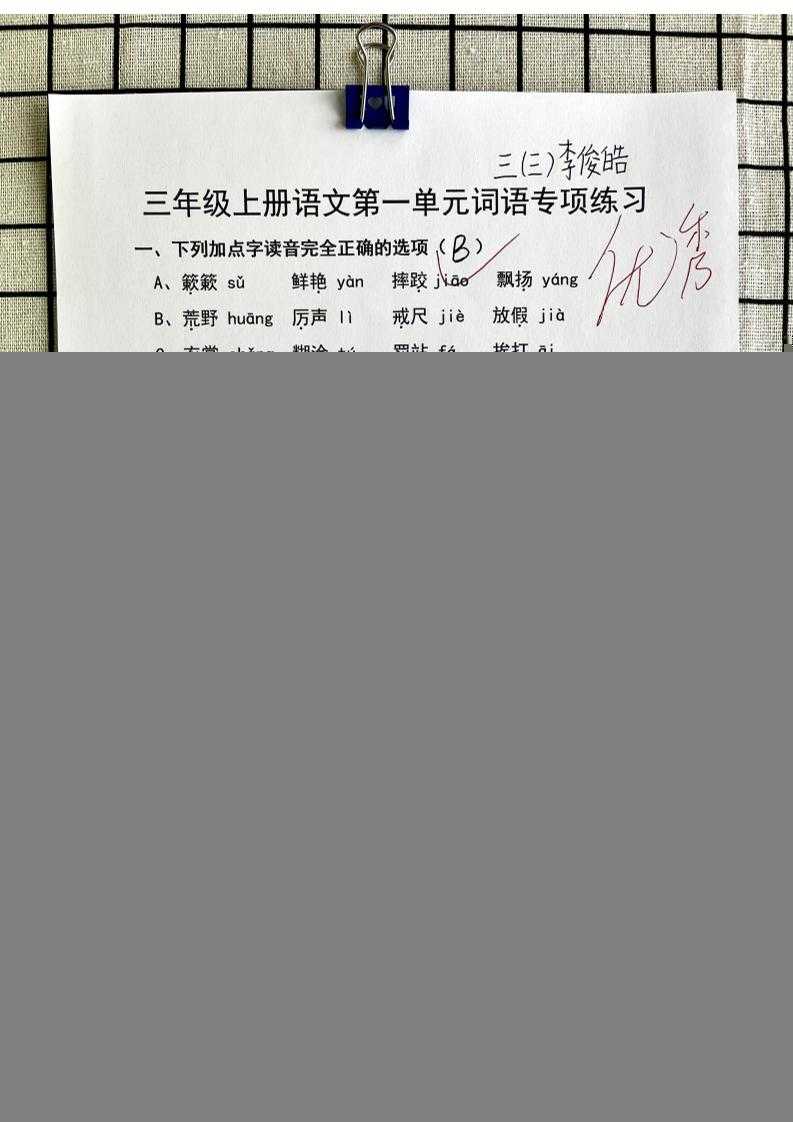 三(三)李俊皓
三年级上册语文第一单元词语专项练习
一、下列加点字读音完全正确的选项（B）
A、簌簌 sǔ 鲜艳 yàn 摔跤 jiāo 飘扬 yáng
B、荒野 huāng 厉声 lì 戒尺 jiè 放假 jià
优秀